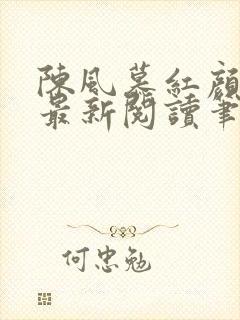 陳風慕紅顏
最新閱讀筆
何忠勉